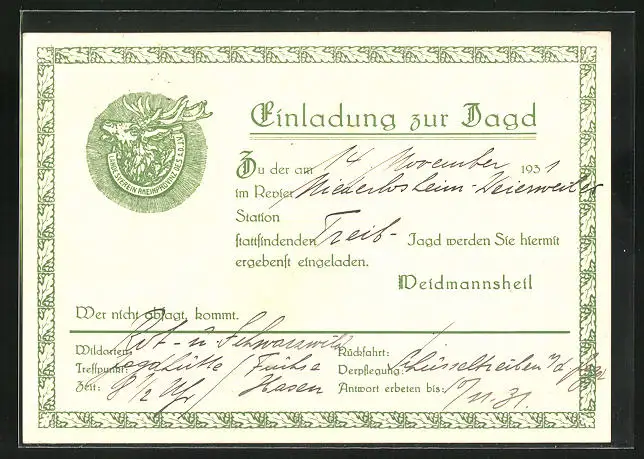 Einladung zur Jagd
LANDESVEREIN RHEINPROVINZ DES A.D.J.V.
Zu der am 14 November 1931
im Revier Niederlosheim-Weierweiler
Station
stattfindenden Treib- Jagd werden Sie hiermit
ergebenst eingeladen.
Weidmannsheil
Wer nicht absagt, kommt.
Wildarten: Rot- u Schwarzwild
Füchse
Hasen
Treffpunkt:
Zeit: 8 1/2 Uhr
Rückfahrt:
Verpflegung: Schüsseltreiben
Antwort erbeten bis: 7/11.31.